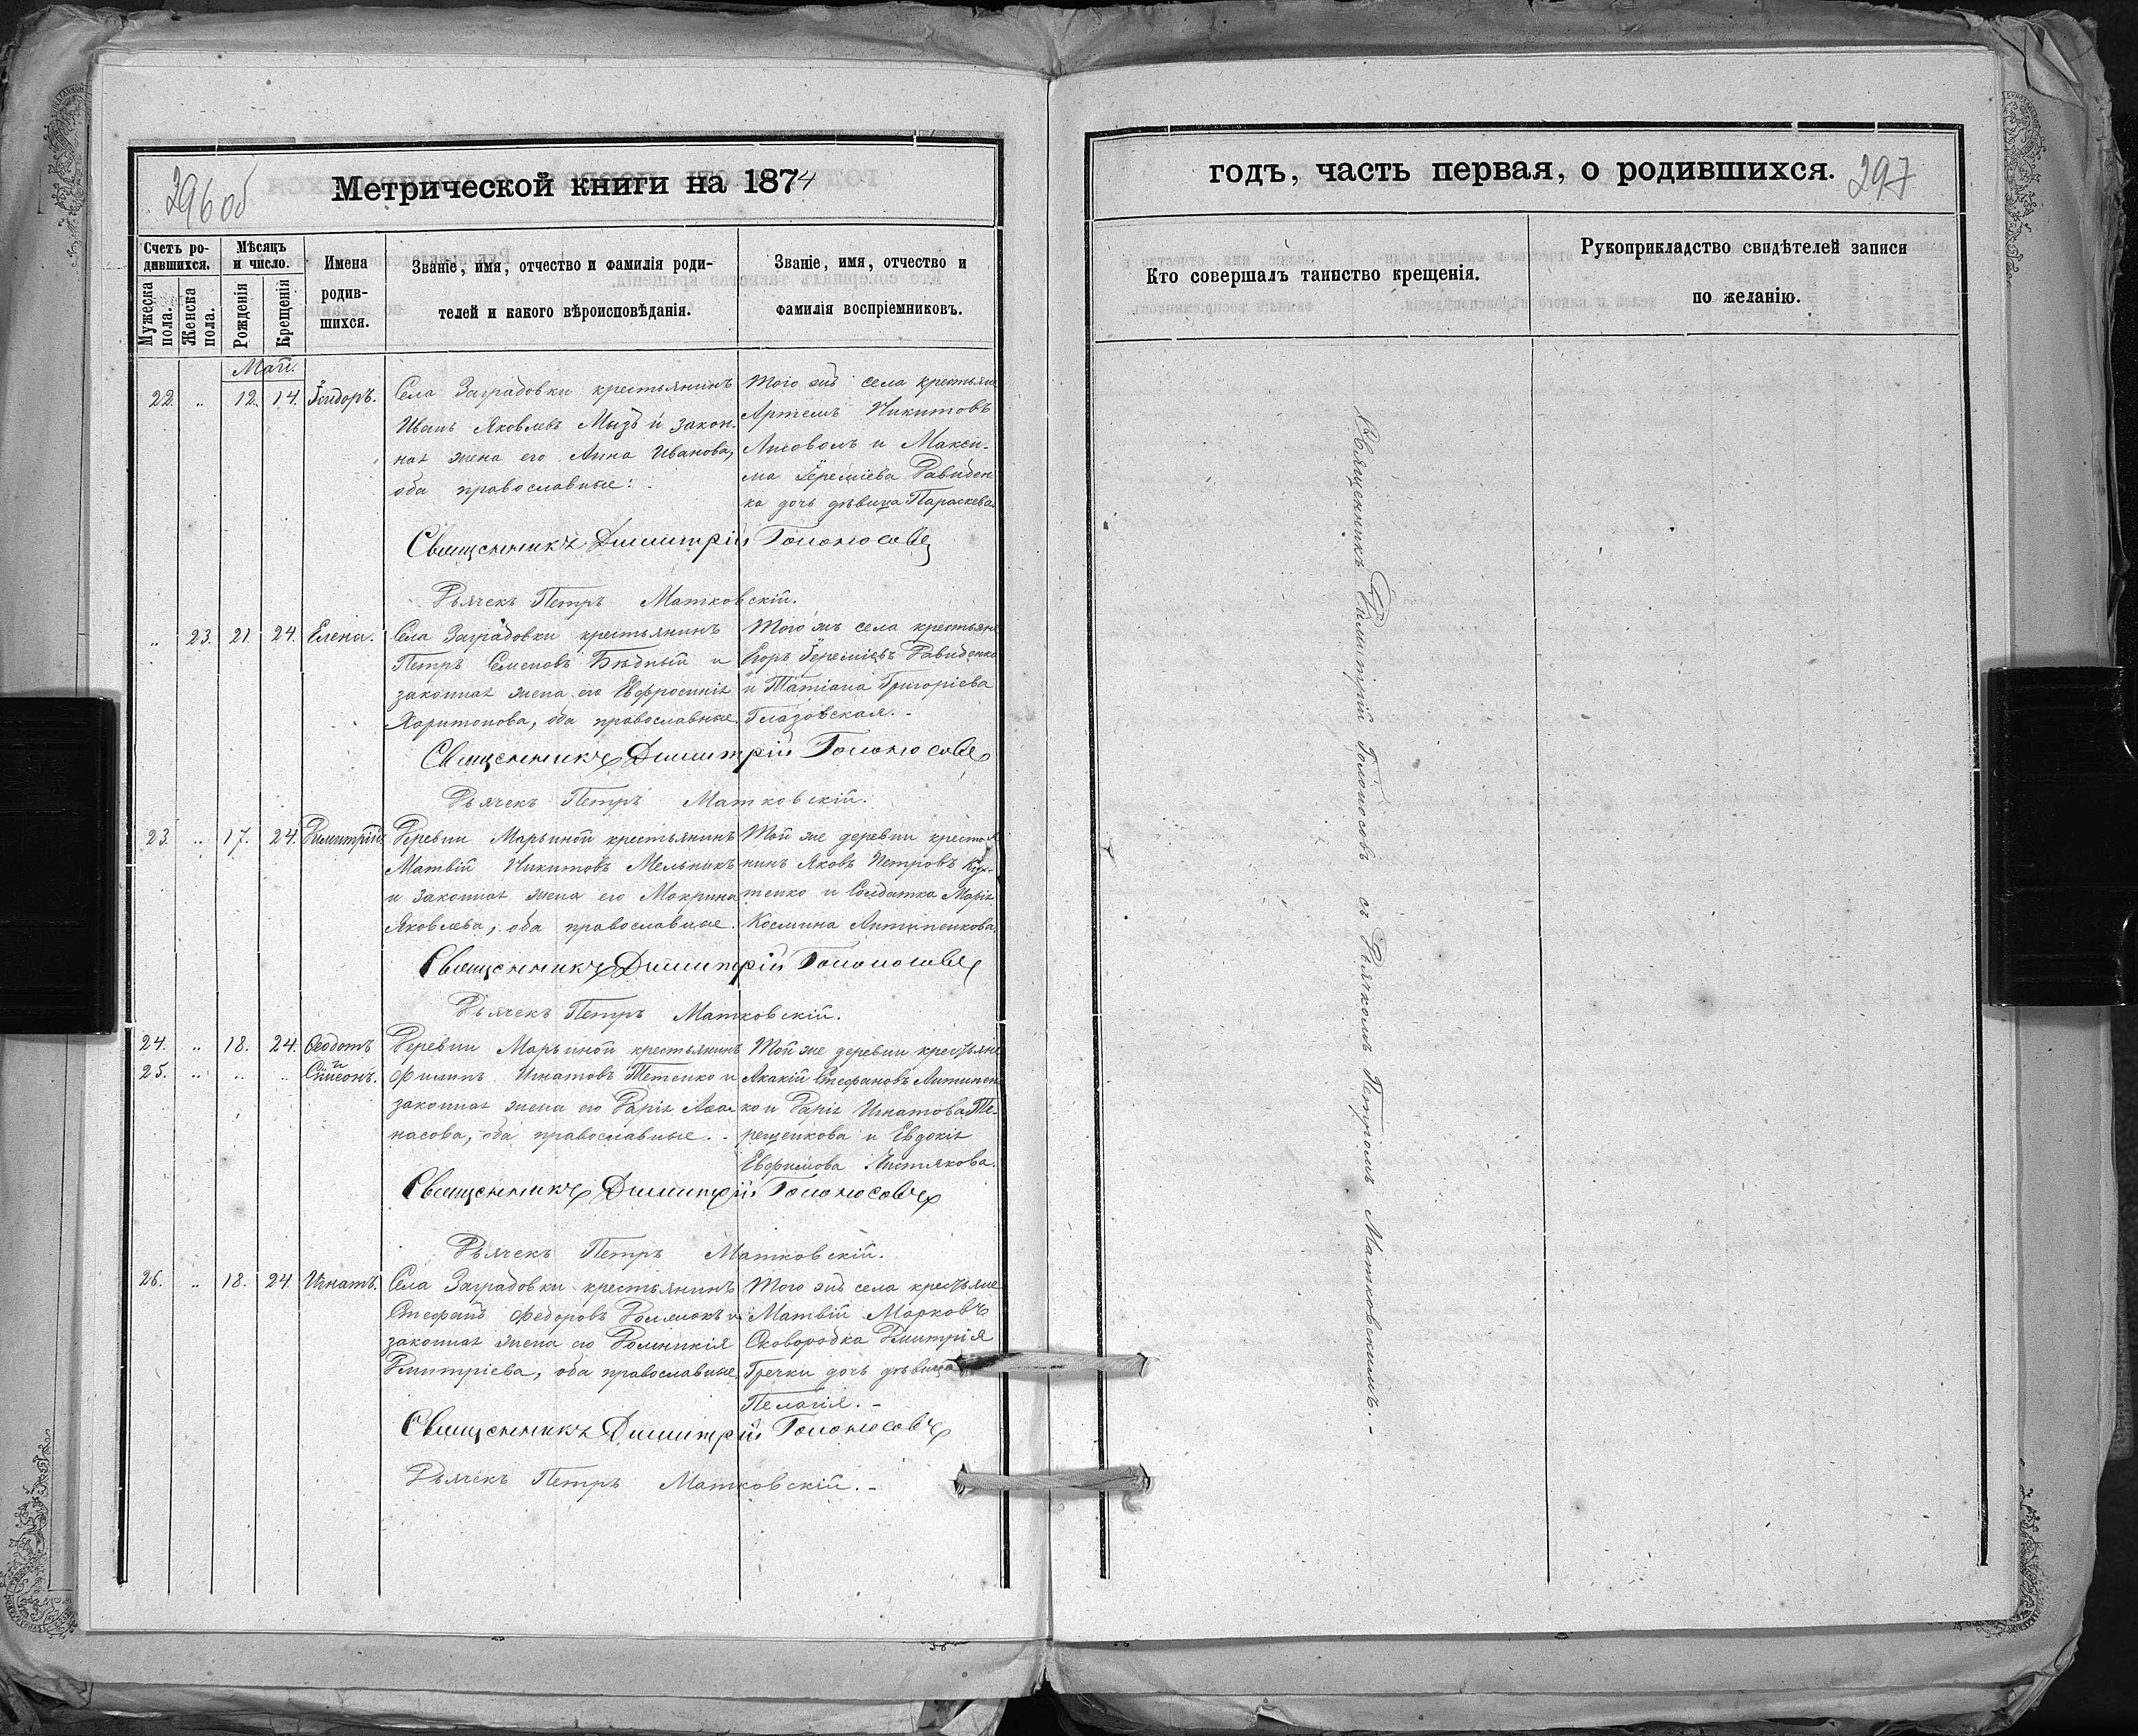 296 об
Метрической книги на 1874
Счетъ ро-
дившихся.
Мѣсяцъ
и число.
Мужеска
пола.
Женска
пола.
Рожденія
Крещенія
Имена
родив-
шихся.
Званіе, имя, отчество и фамилія роди-
телей и какого вѣроисповѣданія.
Званіе, имя, отчество и
фамилія воспріемниковъ.
Май.
22. „ 12. 14. Ісидоръ. Села Заградовки крестьянинъ
Иванъ Яковлевъ Мызъ и закон-
ная жена его Анна Иванова,
оба православные.
Того же села крестьяне
Артемъ Никитовъ
и Макси-
ма Іереміева Давиден-
ка дочь дѣвица Параскева.
Священникъ Димитрій Голоносовъ
Дьячекъ Петръ Матковскій.
„ 23. 21. 24. Елена. Села Заградовки крестьянинъ
Петръ Семеновъ Бѣдный и
законная жена его Евфросинія
Харитонова, оба православные.
Того жъ села крестьяне
Егоръ Іереміевъ Давиденко
и Татіана Григоріева
Глазовская.-
Священникъ Димитрій Голоносовъ
Дьячекъ Петръ Матковскій.
23. „ 17. 24. Димитрій. Деревни Марьиной крестьянинъ
Матвій Никитовъ Мельникъ
и законная жена его Макрина
Яковлева, оба православные.
Той же деревни крестья-
нинъ Яковъ Петровъ
и Солдатка Марія
Космина Антипенкова.
Священникъ Димитрій Голоносовъ
Дьячекъ Петръ Матковскій.
24. „ 18. 24. Ѳеодотъ
и
25. „ „ „ Симеонъ.
Деревни Марьиной крестьянинъ
Филипъ Игнатовъ Тетенко и
законная жена его Дарія Аѳа-
насова, оба православные.-
Той же деревни крестьяне
Акакій Стефановъ Антипен-
ко и Дарія Игнатова Те-
рещенкова и Евдокія
Евфимова Чистякова.
Священникъ Димитрій Голоносовъ
Дьячекъ Петръ Матковскій.
26. „ 18. 24. Игнатъ. Села Заградовки крестьянинъ
Стефанъ Федоровъ и
законная жена его Домникія
Дмитріева, оба православные,
Того же села крестьяне
Матвій Марковъ
Сковородка Дмитрія
Гречки дочь дѣвица
Пелагія.-
Священникъ Димитрій Голоносовъ
Дьячекъ Петръ Матковскій.-
годъ, часть первая, о родившихся.
297
Кто совершалъ таинство крещенія.
Рукоприкладство свидѣтелей записи
по желанію.
Священникъ Димитрій Голоносовъ съ Дьячкомъ Петромъ Матковскимъ.-